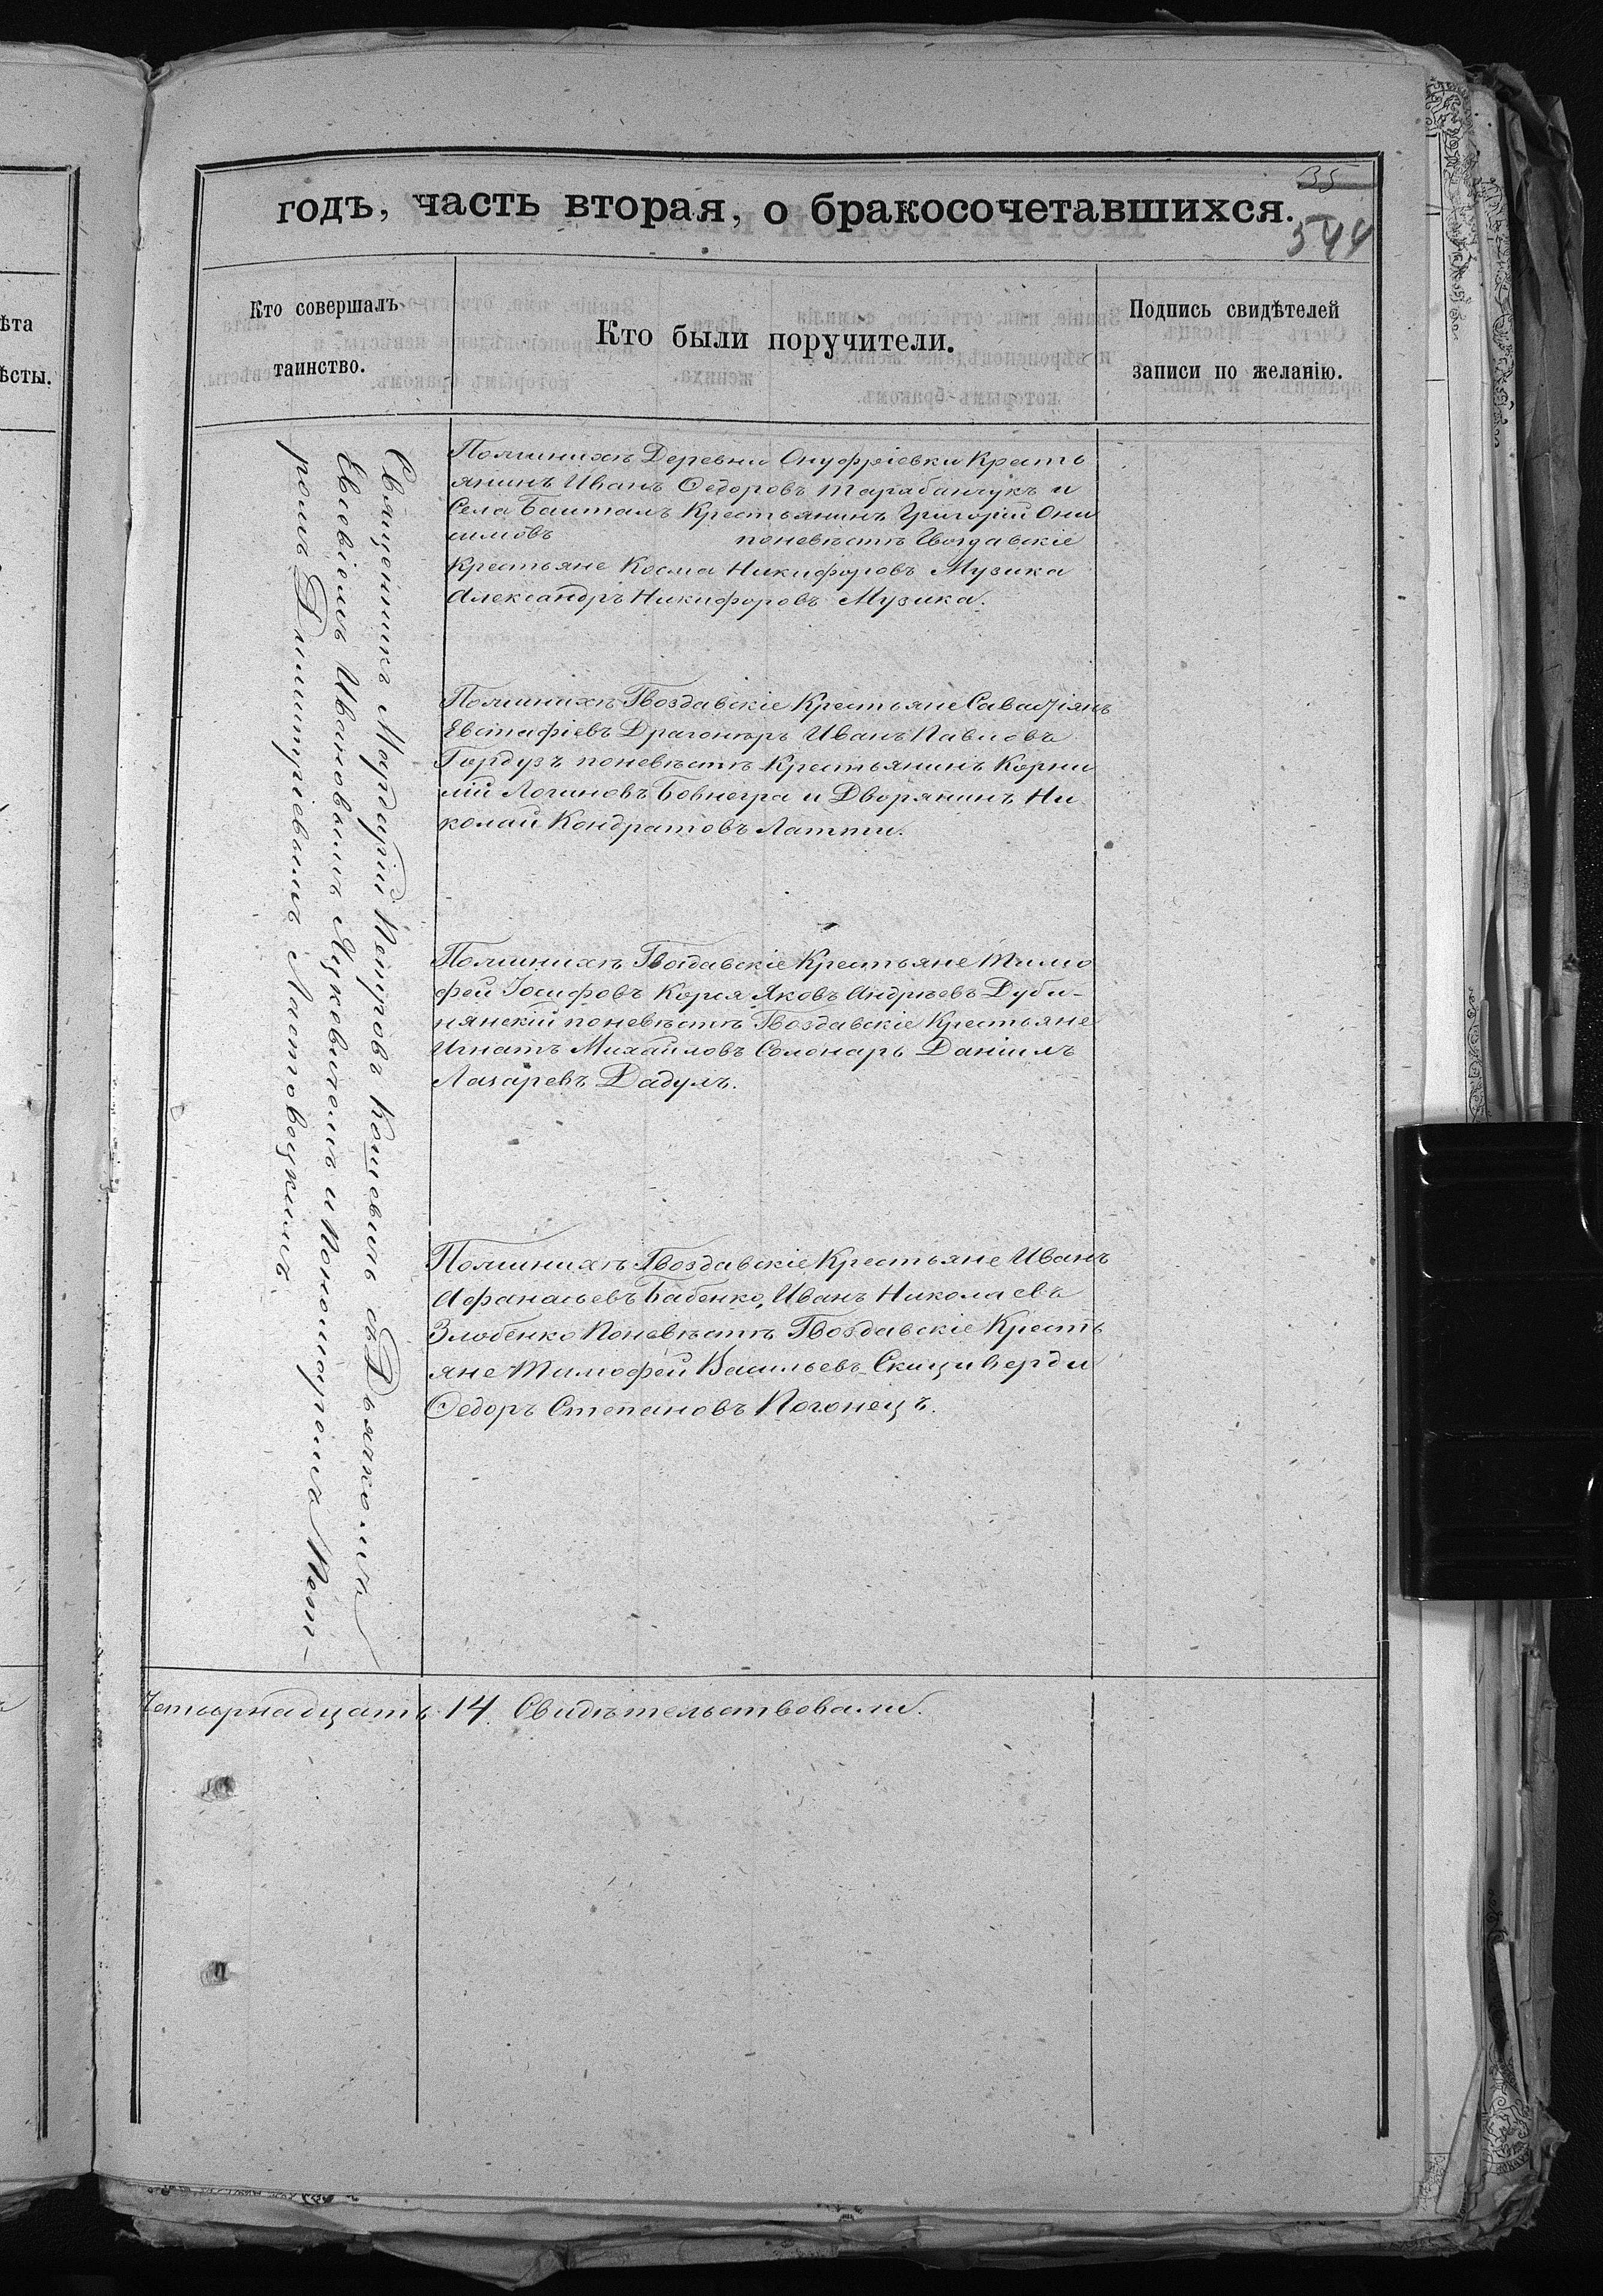 35
годъ, часть вторая, о бракосочетавшихся.
544
ѣта
ѣсты.
Кто совершалъ
таинство.
Кто были поручители.
Подпись свидѣтелей
записи по желанію.
Священникъ Мардарій Петровъ Кошевичь съ Дьячкомъ
Евсевіемъ Ивановымъ Яцковичомъ и Пономаромъ Пет-
ромъ Димитріевымъ Лотовоцкимъ
Пожинихъ Деревни Онуфріевки Кресть
янинъ Иванъ Ѳедоровъ Тарабанчукъ и
Села Баштанъ Крестьянинъ Григорій Они
симовъ поневѣстѣ Гвоздавскіе
Крестьяне Косма Никифоровъ Музика
Александръ Никифоровъ Музика.
Пожинихъ Гвоздавскіе Крестьяне
Евстафіевъ Драгонеръ Иванъ Павловъ
Гордузъ поневѣстѣ Крестьянинъ Корни
лій Логиновъ Бовнегра и Дворянинъ Ни
колай Кондратовъ Латти.
Пожинихъ Гвоздавскіе Крестьяне Тимо
фей Іосифовъ Корея Яковъ Андреевъ Дуби-
нянскій поневѣстѣ Гвоздавскіе Крестьяне
Игнатъ Михайловъ Солонарь Даніилъ
Лазаревъ Дадулъ.
Пожинихъ Гвоздавскіе Крестьяне Иванъ
Афанасьевъ Бабенко, Иванъ Николаевъ
Злобенко Поневѣстѣ Гвоздавскіе Кресть
яне Тимофей Васильевъ Скициверди
Ѳедоръ Степановъ Погонецъ.
Четырнадцать 14. Свидѣтельствовали.